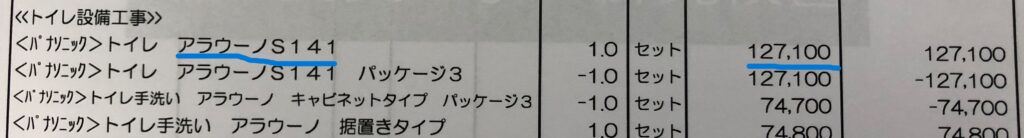 ≪トイレ設備工事≫
<パナソニック>トイレ　アラウーノS141　1.0　セット　127,100　127,100
<パナソニック>トイレ　アラウーノS141　パッケージ3　-1.0　セット　127,100　-127,100
<パナソニック>トイレ手洗い　アラウーノ　キャビネットタイプ　パッケージ3　-1.0　セット　74,700　-74,700
<パナソニック>トイレ手洗い　アラウーノ　据置きタイプ　1.0　セット　74,800　74,800